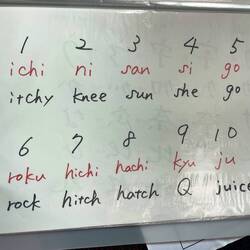 1 2 3 4 5
ichi ni san si go
itchy knee sun she go
6 7 8 9 10
roku hichi hachi kyu ju
rock hitch hatch Q juice